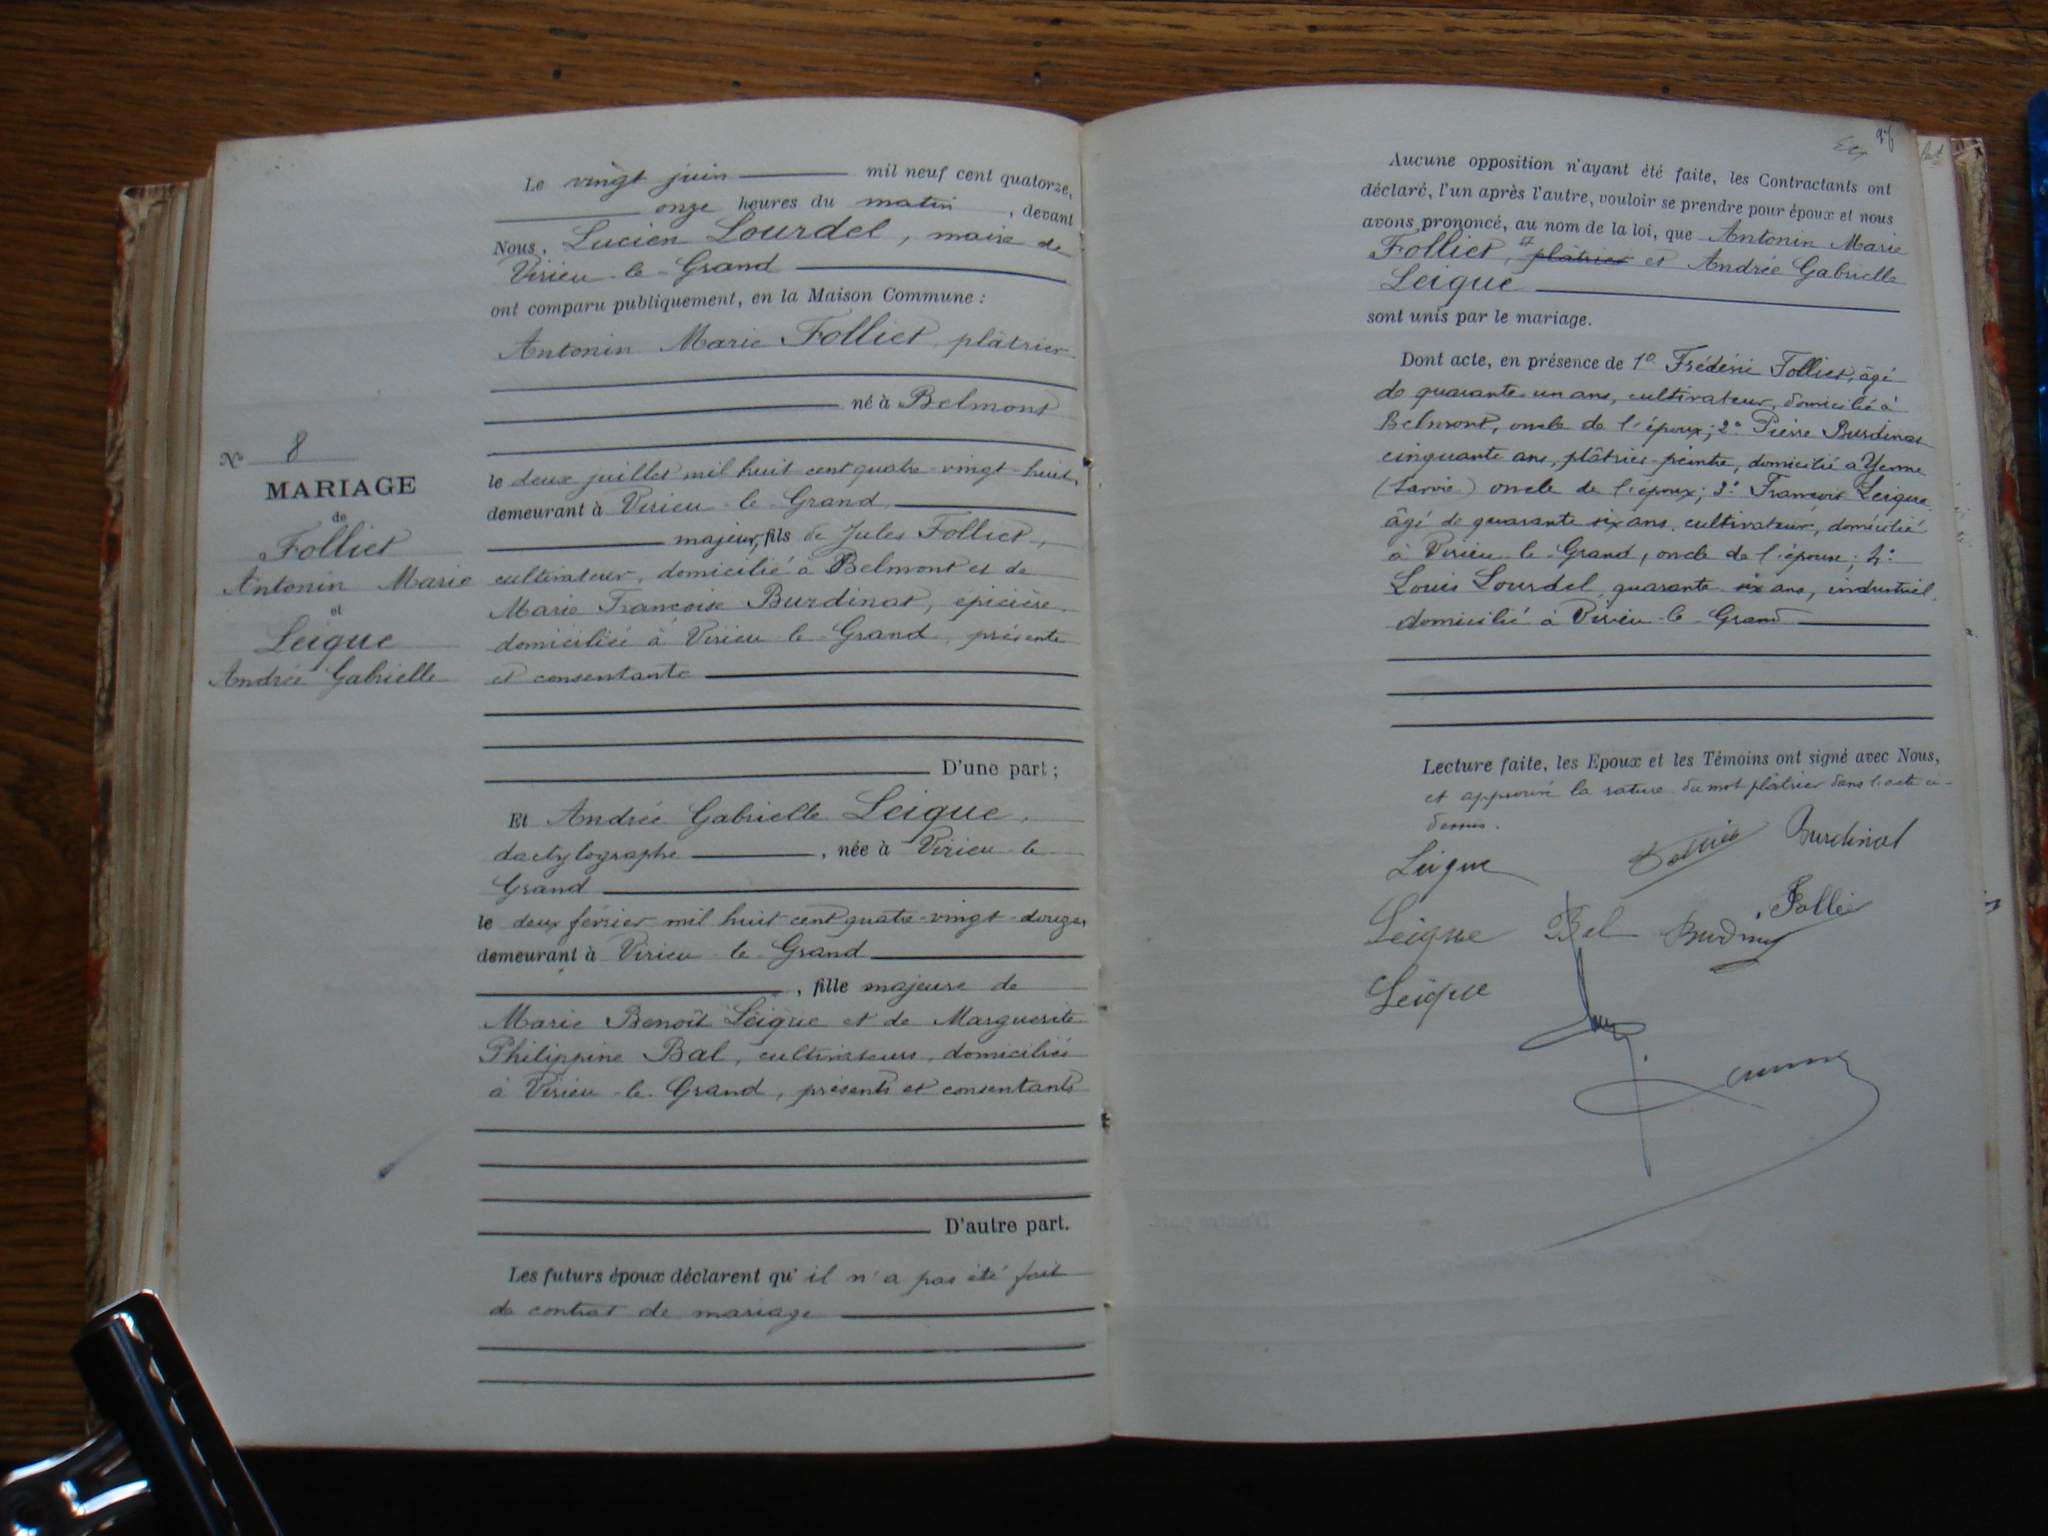 N° 8
MARIAGE
de
Folliet
Antonin Marie
et
Leigue
Andrée Gabrielle
Le vingt juin mil neuf cent quatorze,
onze heures du matin, devant
Nous, Lucien Lourdel, maire de
Virieu-le-Grand
ont comparu publiquement, en la Maison Commune :
Antonin Marie Folliet, plâtrier
né à Belmont
le deux juillet mil huit cent quatre-vingt-huit,
demeurant à Virieu-le-Grand
majeur, fils de Jules Folliet,
cultivateur, domicilié à Belmont et de
Marie Françoise Burdinat, épicière,
domiciliée à Virieu-le-Grand, présente
et consentante
D'une part ;
Et Andrée Gabrielle Leigue,
dactylographe, née à Virieu-le-
Grand
le deux février mil huit cent quatre-vingt-douze,
demeurant à Virieu-le-Grand
, fille majeure de
Marie Benoît Leigue et de Marguerite
Philippine Bal, cultivateurs, domiciliés
à Virieu-le-Grand, présents et consentants
D'autre part.
Les futurs époux déclarent qu'il n'a pas été fait
de contrat de mariage
Aucune opposition n'ayant été faite, les Contractants ont
déclaré, l'un après l'autre, vouloir se prendre pour époux et nous
avons prononcé, au nom de la loi, que Antonin Marie
Folliet, plâtrier et Andrée Gabrielle
Leigue
sont unis par le mariage.
Dont acte, en présence de 1° Frédéric Folliet, âgé
de quarante un ans, cultivateur, domicilié à
Belmont, oncle de l'époux; 2° Pierre Burdinat
cinquante ans, plâtrier-peintre, domicilié à Yenne
(Savoie) oncle de l'époux; 3° François Leigue
âgé de quarante six ans, cultivateur, domicilié
à Virieu-le-Grand, oncle de l'épouse; 4°
Louis Lourdel, quarante six ans, industriel,
domicilié à Virieu-le-Grand
Lecture faite, les Epoux et les Témoins ont signé avec Nous,
et approuvé la rature du mot plâtrier dans l'acte ci-
dessus.
Leigue Burdinat
Leigue Bal Folli
Leigue